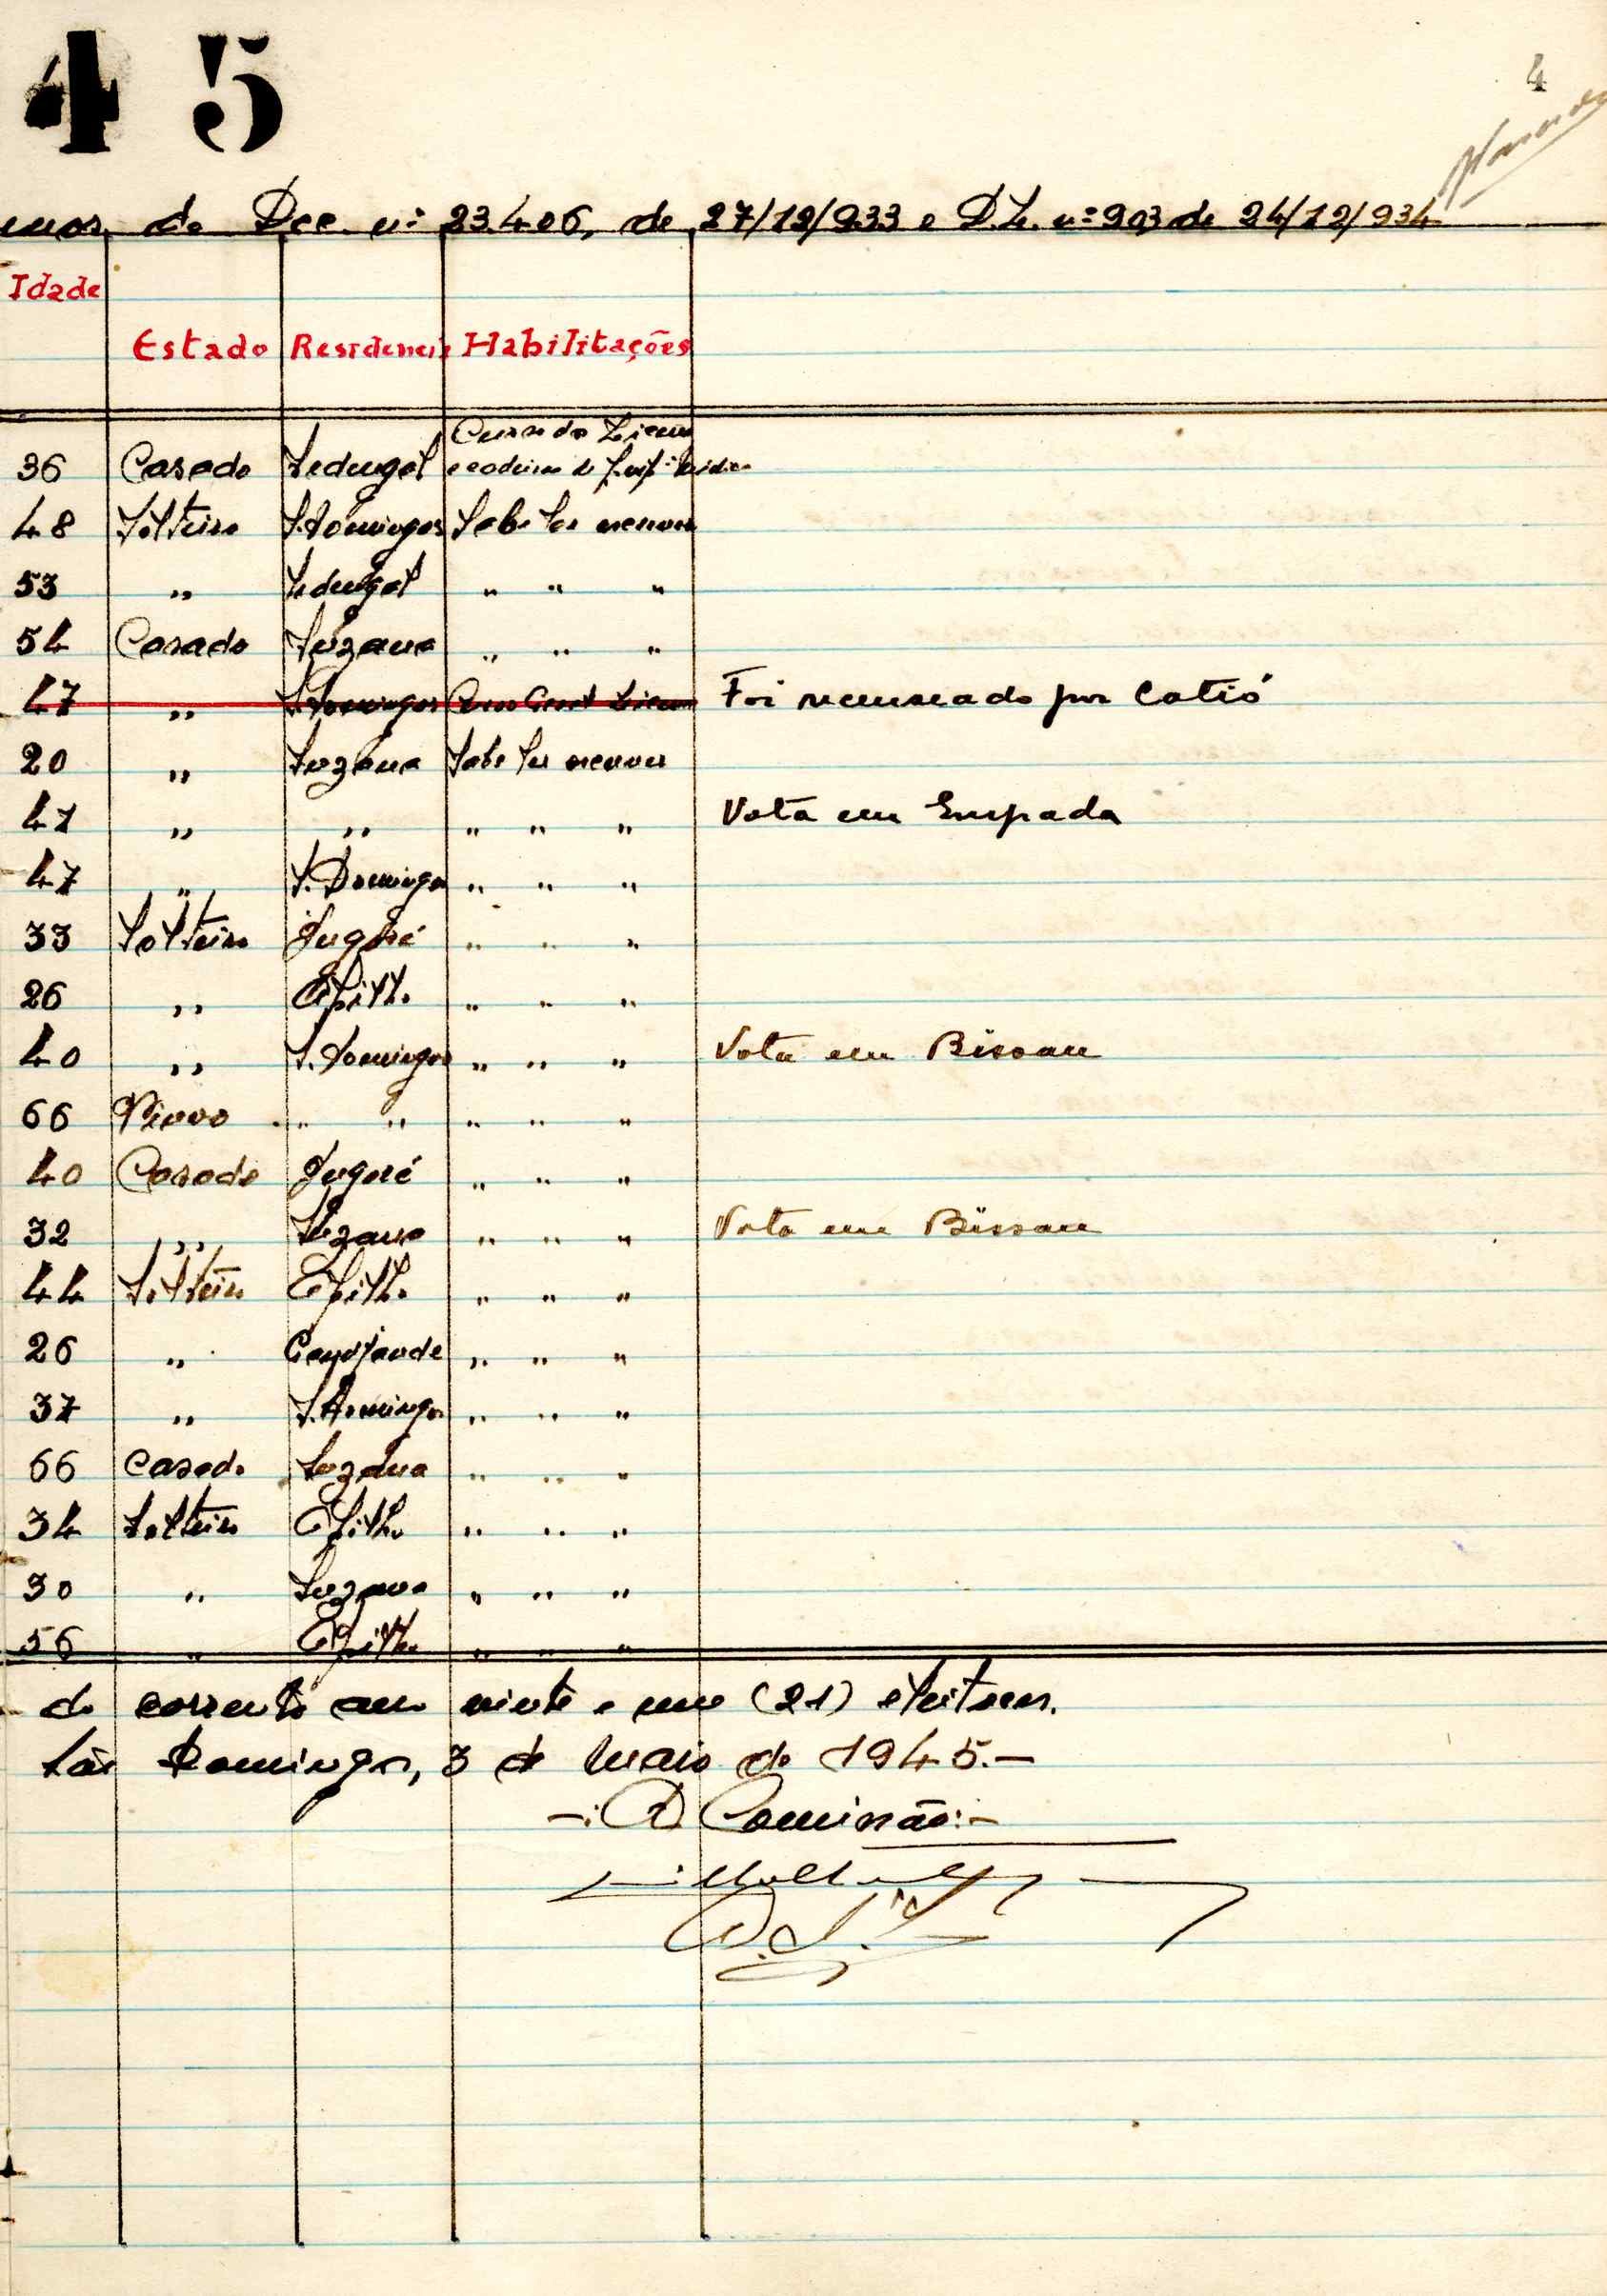 45
4
de Dec. nº 23.406, de 27/12/933 e D.L. nº 903 de 24/12/934
Idade
Estado Residencia Habilitações
Curso do Liceu
36 Casado Sedengal
48 Solteiro S. Domingos Sabe ler escrever
53 " Sedengal " " "
54 Casado Suzana " " "
47 " S. Domingos Curso Geral Liceu Foi recenseado por Catió
20 " Suzana Sabe ler escrever
47 " " " " " Vota em Empada
47 " S. Domingos " " "
33 Solteiro Ingoré " " "
26 " " " "
40 " S. Domingos " " " Vota em Bissau
66 Viuvo " " " " "
40 Casado Ingoré " " "
32 " Suzana " " " Vota em Bissau
44 Solteiro " " "
26 " " " "
37 " S. Domingos " " "
66 Casado Suzana " " "
34 Solteiro " " "
30 " Suzana " " "
56 " " " "
do corrente ano vinte e um (21) eleitores.
São Domingos, 3 de Maio de 1945.—
—: A Comissão:—